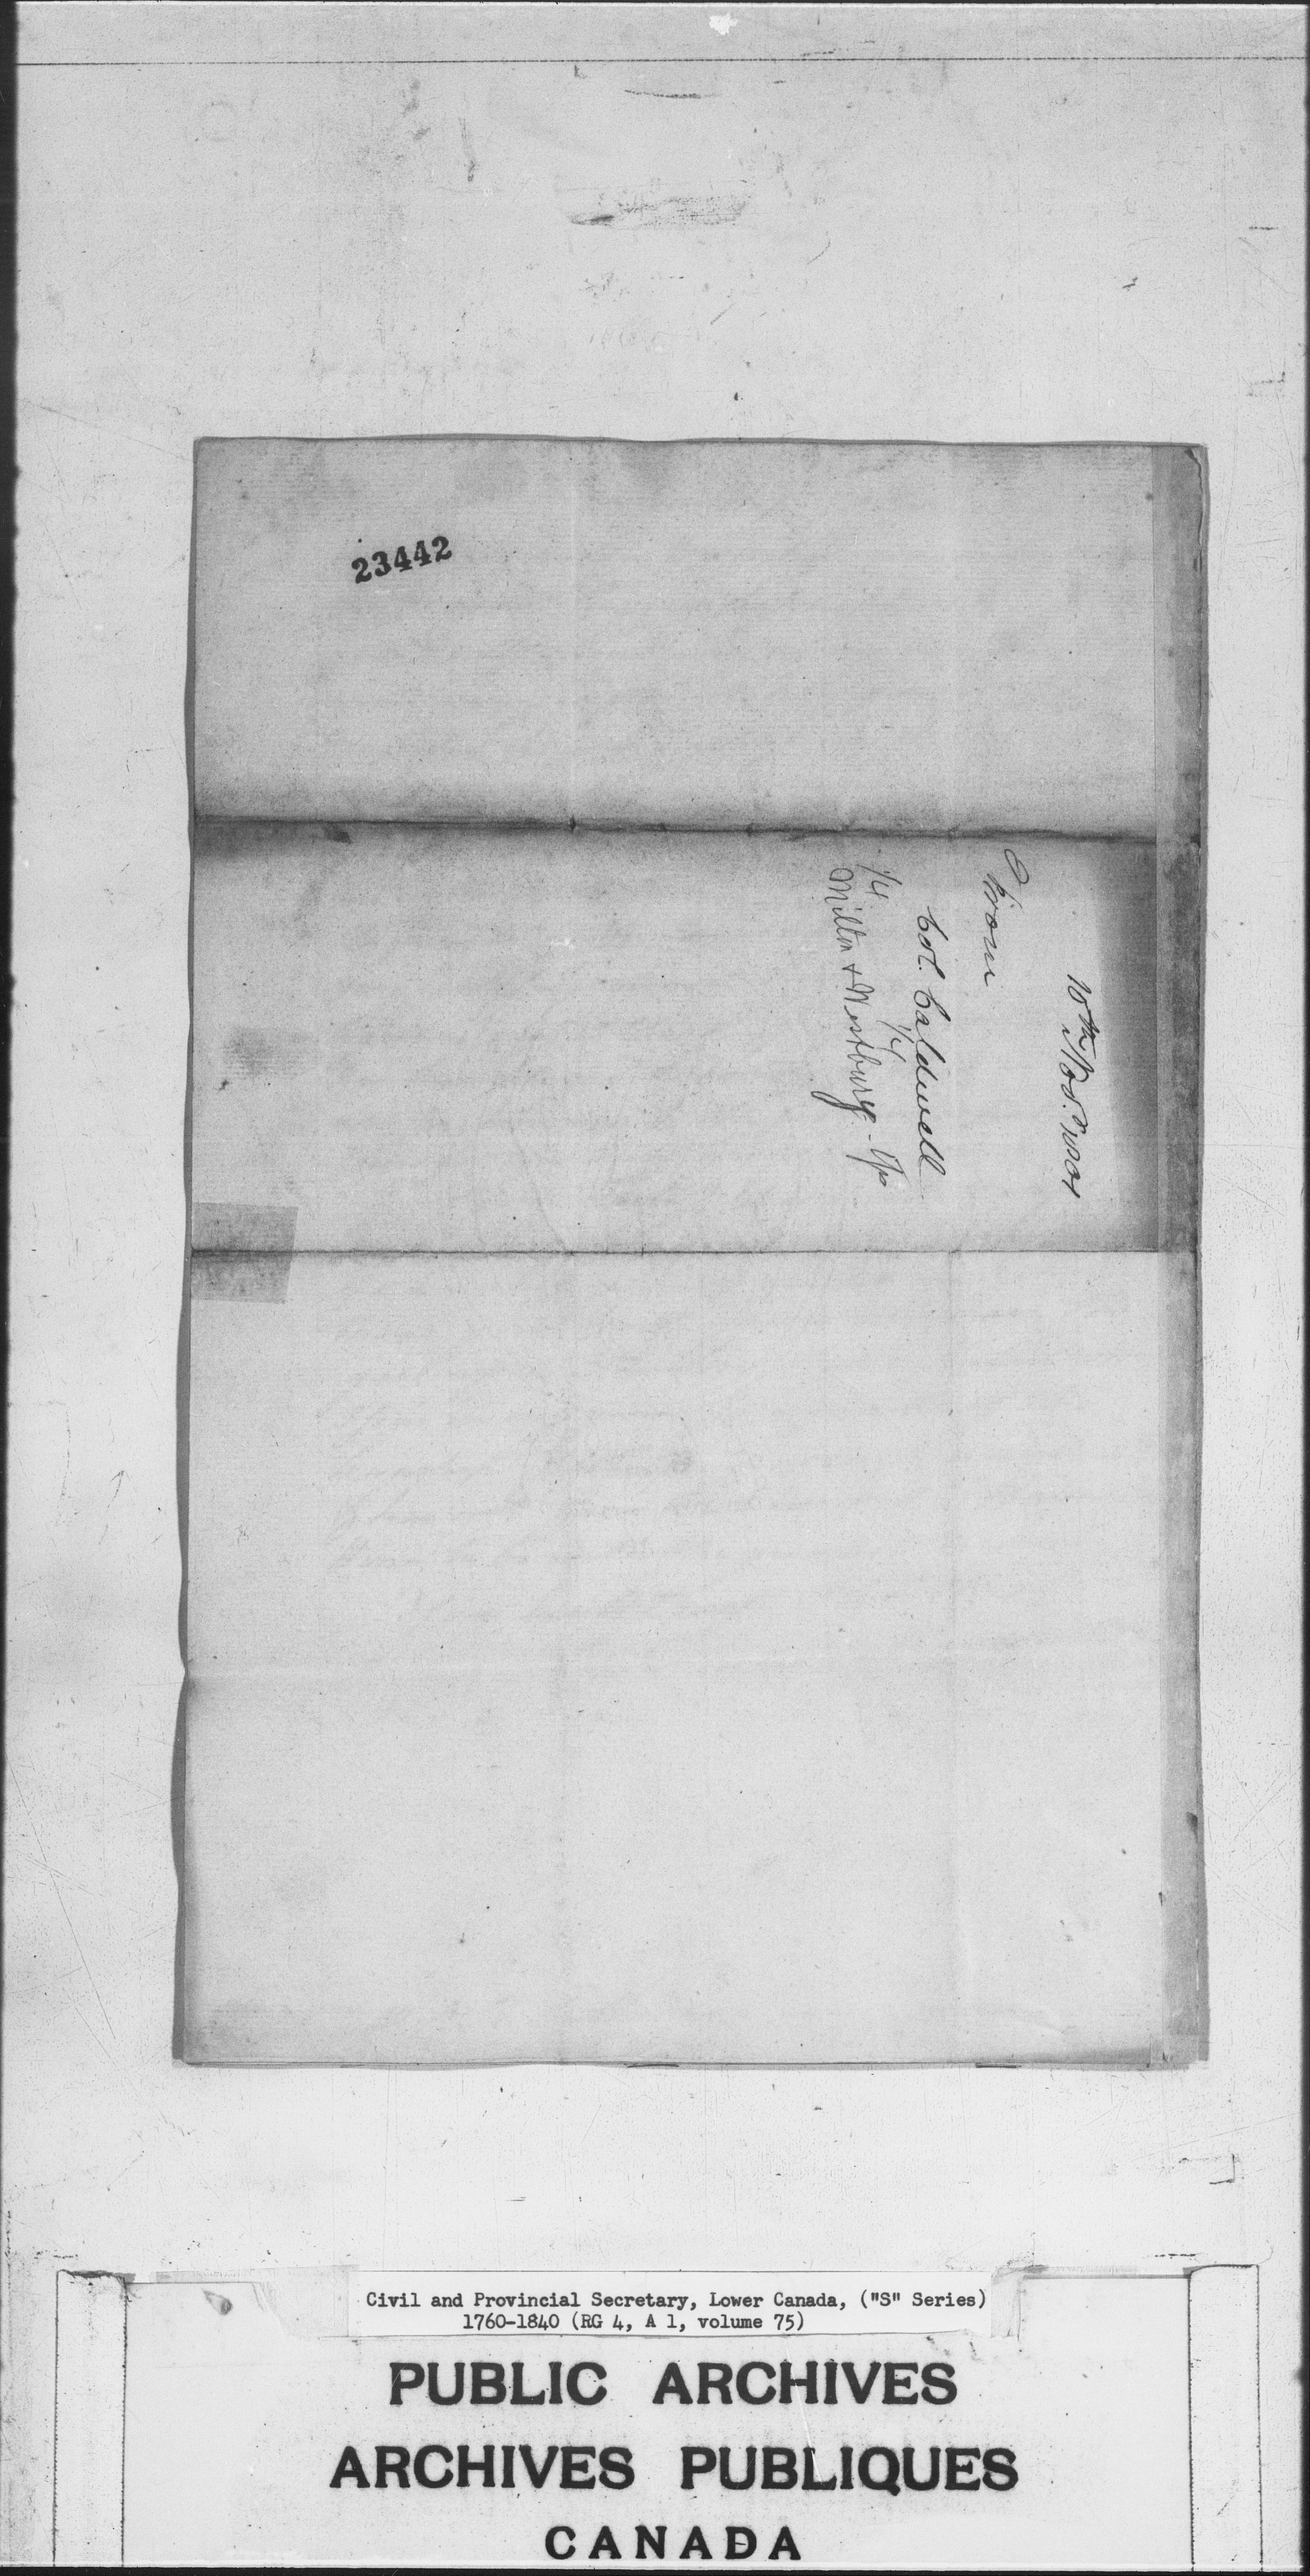 23442
10th Nov.r 1801
From
Col. Caldwell
1/4 1/4
Milton & Westbury -
Civil and Provincial Secretary, Lower Canada, ("S" Series)
1760-1840 (RG 4, A 1, volume 75)
PUBLIC ARCHIVES
ARCHIVES PUBLIQUES
CANADA